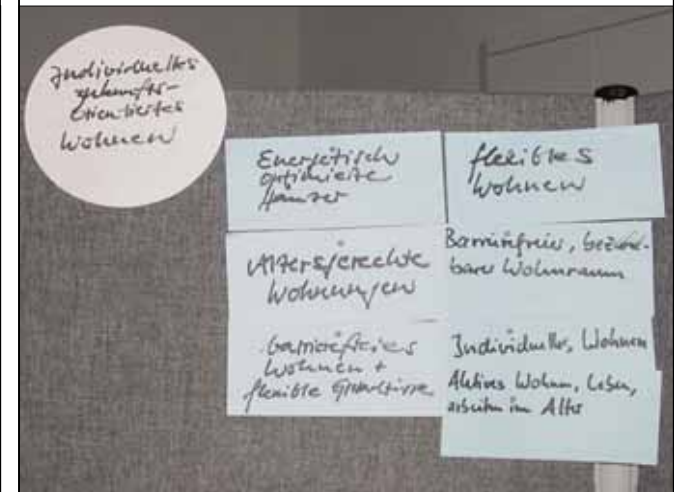 Individuelles
zukunfts-
orientiertes
Wohnen
Energetisch
optimierte
Häuser
Altersgerechte
Wohnungen
barrierefreies
Wohnen +
flexible Grundrisse
flexibles
Wohnen
Barrierefreier, bezahl-
barer Wohnraum
Individuelles, Wohnen
Aktives Wohnen, Leben,
arbeiten im Alter